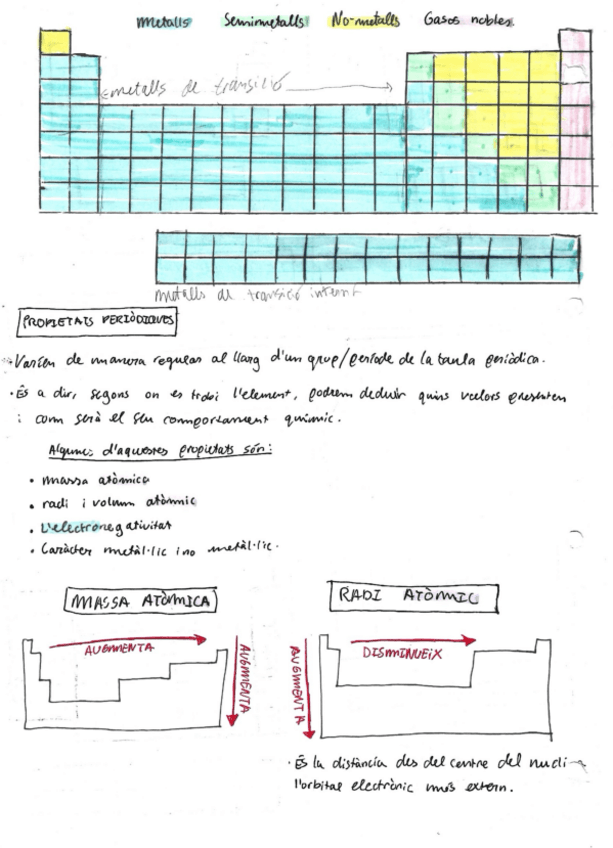 Metalls Semimetalls No-metalls Gasos nobles
metalls de transició
metalls de transició interna
PROPIETATS PERIÒDIQUES
· Varien de manera regular al llarg d'un grup/període de la taula periòdica.
· És a dir, segons on es trobi l'element, podrem deduir quins valors presenten
i com serà el seu comportament químic.
Algunes d'aquestes propietats són:
• massa atòmica
• radi i volum atòmic
• L'electronegativitat
• Caràcter metàl·lic i no metàl·lic.
MASSA ATÒMICA
RADI ATÒMIC
AUGMENTA
AUGMENTA
AUGMENTA
DISMINUEIX
· És la distància des del centre del nucli
l'orbital electrònic més extern.